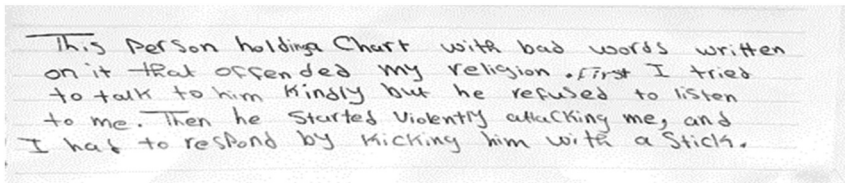 This person holdinga Chart with bad words written
on it that offended my religion. First I tried
to talk to him kindly but he refused to listen
to me. Then he started violently attacking me, and
I had to respond by kicking him with a stick.